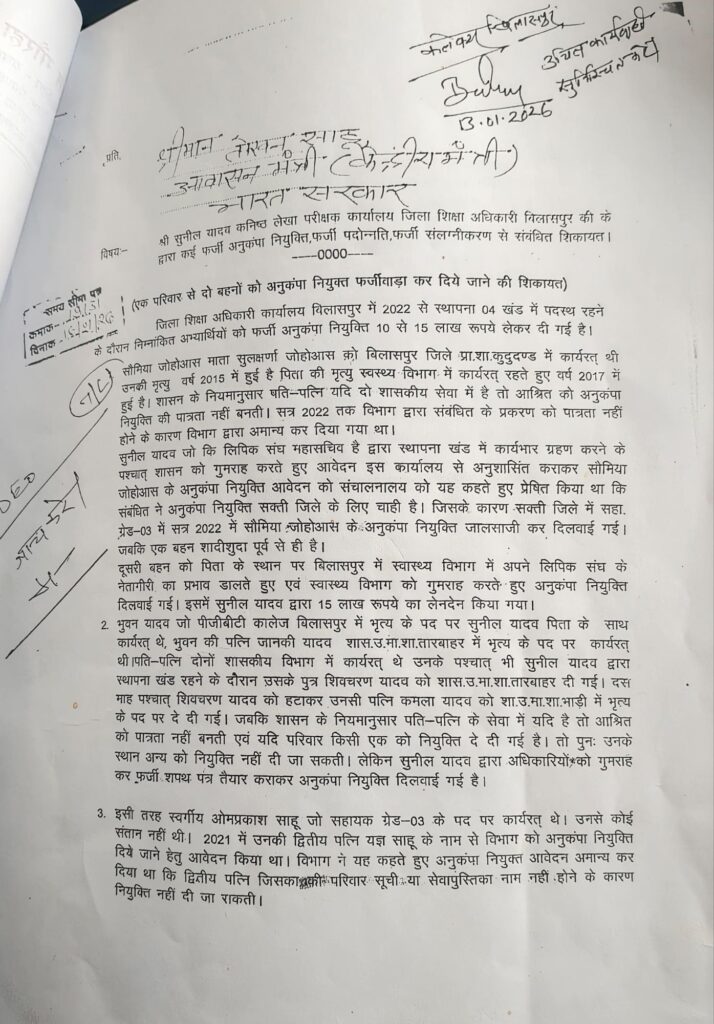 कलेक्टर बिलासपुर
उचित कार्यवाही
सुनिश्चित करें
13.01.2026
प्रति,
श्रीमान तोखन साहू
आवासन मंत्री (केन्द्रीय मंत्री)
भारत सरकार
विषय:- श्री सुनील यादव कनिष्ठ लेखा परीक्षक कार्यालय जिला शिक्षा अधिकारी बिलासपुर की के
द्वारा कई फर्जी अनुकंपा नियुक्ति,फर्जी पदोन्नति,फर्जी संलग्नीकरण से संबंधित शिकायत।
----0000----
(एक परिवार से दो बहनों को अनुकंपा नियुक्त फर्जीवाड़ा कर दिये जाने की शिकायत)
समय सीमा पत्र
क्रमांक
दिनांक
जिला शिक्षा अधिकारी कार्यालय बिलासपुर में 2022 से स्थापना 04 खंड में पदस्थ रहने
के दौरान निम्नांकित अभ्यार्थियों को फर्जी अनुकंपा नियुक्ति 10 से 15 लाख रूपये लेकर दी गई है।
सौमिया जोहोआस माता सुलक्षर्णा जोहोआस को बिलासपुर जिले प्रा.शा.कुदुदण्ड में कार्यरत् थी
उनकी मृत्यु वर्ष 2015 में हुई है पिता की मृत्यु स्वस्थ्य विभाग में कार्यरत् रहते हुए वर्ष 2017 में
हुई है। शासन के नियमानुसार षति-पत्नि यदि दो शासकीय सेवा में है तो आश्रित को अनुकंपा
नियुक्ति की पात्रता नहीं बनती। सत्र 2022 तक विभाग द्वारा संबंधित के प्रकरण को पात्रता नहीं
होने के कारण विभाग द्वारा अमान्य कर दिया गया था।
सुनील यादव जो कि लिपिक संघ महासचिव है द्वारा स्थापना खंड में कार्यभार ग्रहण करने के
पश्चात् शासन को गुमराह करते हुए आवेदन इस कार्यालय से अनुशासिंत कराकर सौमिया
जोहोआस के अनुकंपा नियुक्ति आवेदन को संचालनालय को यह कहते हुए प्रेषित किया था कि
संबंधित ने अनुकंपा नियुक्ति सक्ती जिले के लिए चाही है। जिसके कारण सक्ती जिले में सहा.
ग्रेड-03 में सत्र 2022 में सौमिया जोहोआस के अनुकंपा नियुक्ति जालसाजी कर दिलवाई गई।
जबकि एक बहन शादीशुदा पूर्व से ही है।
दूसरी बहन को पिता के स्थान पर बिलासपुर में स्वास्थ्य विभाग में अपने लिपिक संघ के
नेतागीरी का प्रभाव डालते हुए एवं स्वास्थ्य विभाग को गुमराह करते हुए अनुकंपा नियुक्ति
दिलवाई गई। इसमें सुनील यादव द्वारा 15 लाख रूपये का लेनदेन किया गया।
DEO
2. भुवन यादव जो पीजीबीटी कालेज बिलासपुर में भृत्य के पद पर सुनील यादव पिता के साथ
कार्यरत् थे, भुवन की पत्नि जानकी यादव शास.उ.मा.शा.तारबाहर में भृत्य के पद पर कार्यरत्
थी।पति-पत्नि दोनों शासकीय विभाग में कार्यरत् थे उनके पश्चात् भी सुनील यादव द्वारा
स्थापना खंड रहने के दौरान उसके पुत्र शिवचरण यादव को शास.उ.मा.शा.तारबाहर दी गई। दस
माह पश्चात् शिवचरण यादव को हटाकर उनसी पत्नि कमला यादव को शा.उ.मा.शा.भाड़ी में भृत्य
के पद पर दे दी गई। जबकि शासन के नियमानुसार पति-पत्नि के सेवा में यदि है तो आश्रित
को पात्रता नहीं बनती एवं यदि परिवार किसी एक को नियुक्ति दे दी गई है। तो पुनः उनके
स्थान अन्य को नियुक्ति नहीं दी जा सकती। लेकिन सुनील यादव द्वारा अधिकारियों को गुमराह
कर फर्जी शपथ पंत्र तैयार कराकर अनुकंपा नियुक्ति दिलवाई गई है।
3. इसी तरह स्वर्गीय ओमप्रकाश साहू जो सहायक ग्रेड-03 के पद पर कार्यरत् थे। उनसे कोई
संतान नहीं थी। 2021 में उनकी द्वितीय पत्नि यज्ञ साहू के नाम से विभाग को अनुकंपा नियुक्ति
दिये जाने हेतु आवेदन किया था। विभाग ने यह कहते हुए अनुकंपा नियुक्त आवेदन अमान्य कर
दिया था कि द्वितीय पत्नि जिसका की परिवार सूची या सेवापुस्तिका नाम नहीं होने के कारण
नियुक्ति नहीं दी जा राकती।